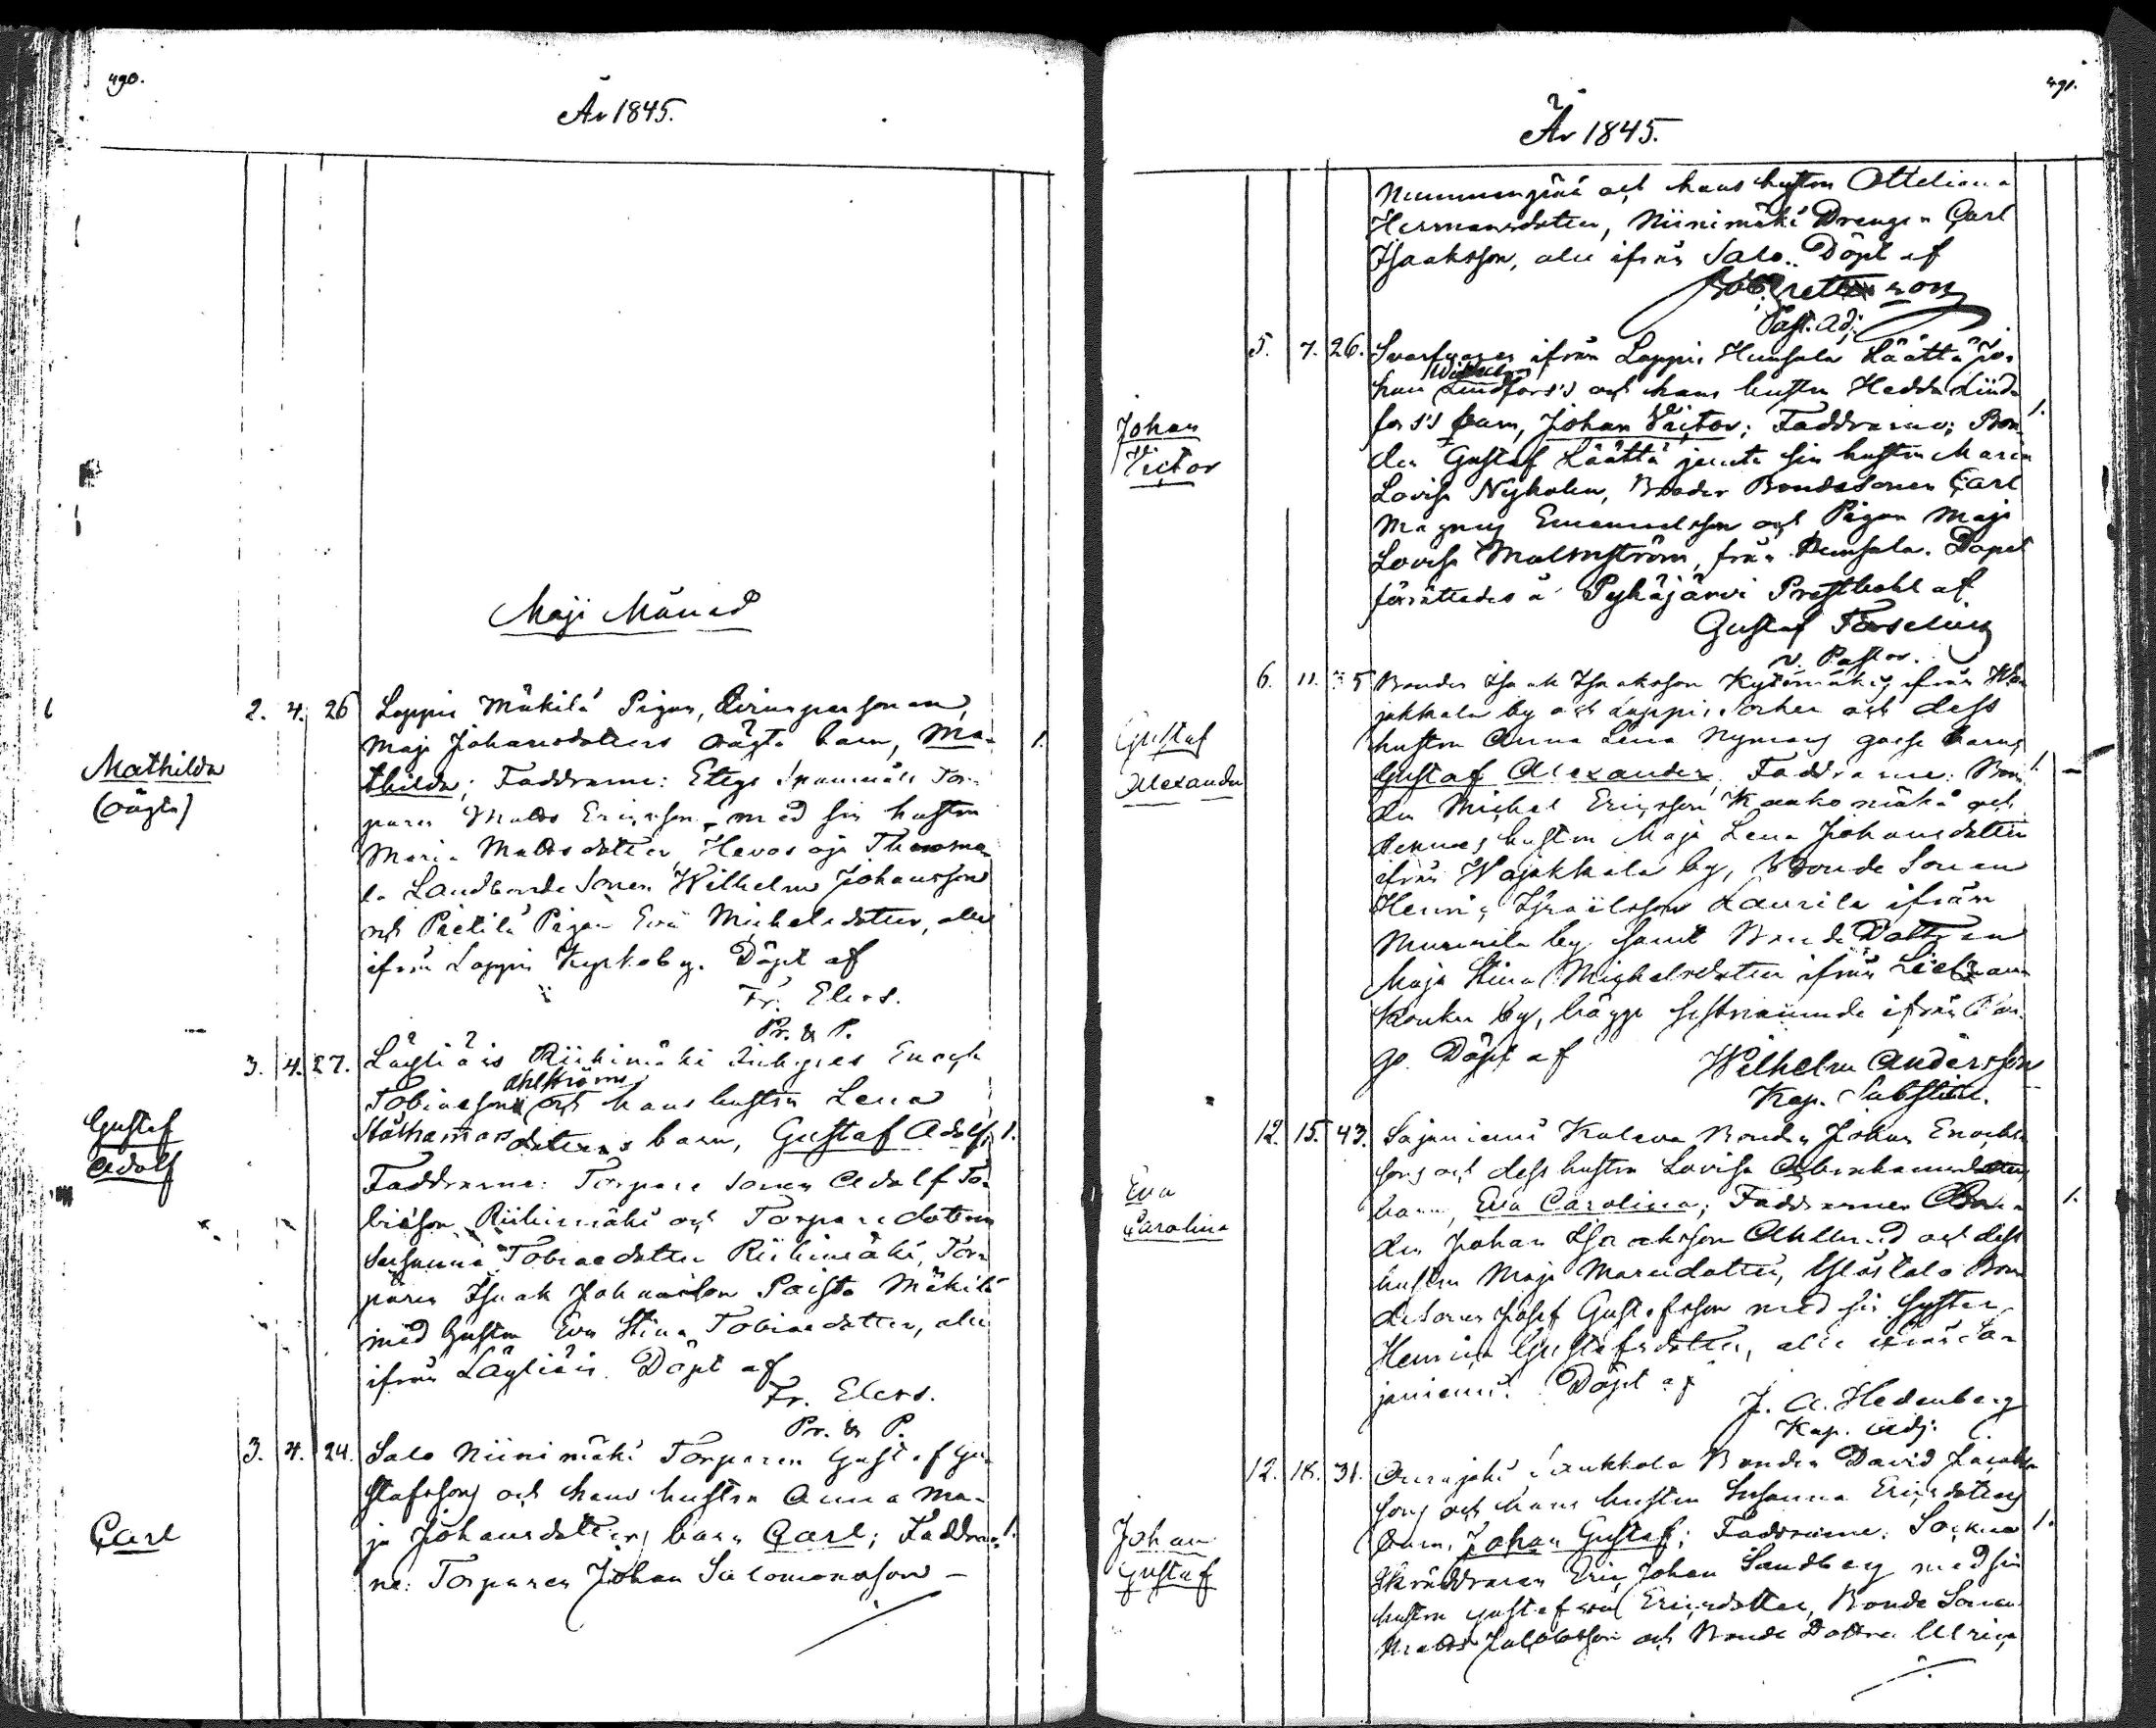 490.
År 1845.
Maji Månad
Mathilda
(oägta)
2. 4. 26 Loppis Mäkilä Pigan,
Maja Johansdotters oägta barn, Ma- 1.
thilda; Faddrarne: Torparen
Matts Ericsson med sin hustru
Maria Mattsdotter, Havosoja
Landbonde Sonen Wilhelm Johansson
och Pietilä Pigan Eva Michelsdotter, alle
ifrån Loppis Kyrkoby. Döpt af
Fr. Elers.
Pr. & P.
Gustaf
Adolf
3. 4. 27. Läyliäis Riihimäki Enoch
Ahlströms
Tobiasson och hans hustru Lena
dotters barn, Gustaf Adolf; 1.
Faddrarne: Torpare sonen Adolf To-
biasson Riihimäki och Torpare dottren
Susanna Tobiaedotter Riihimäki, Tor-
paren Isaak Johansson Mäkilä
med hustru Eva Stina Tobiaedotter, alle
ifrån Läyliäis. Döpt af
Fr. Elers.
Pr. & P.
Carl
3. 4. 24. Salo Niinimäki Torparen Gustaf Gu-
stafssons och hans hustru Anna Ma-
ja Johansdotters barn Carl; Faddrar- 1.
ne: Torparen Johan Salomonsson
491.
År 1845.
Nummenpää och hans hustru Otteliana
Hermansdotter, Niinimäki Drengen Carl
Isaksson, alle ifrån Salo. Döpt af
Past. Adj.
Johan
Victor
5. 7. 26. ifrån Loppis Hunsala Läättä Jo-
Wilhelm
han Lindfors's och hans hustru Hedda Lind-
fors's barn, Johan Victor; Faddrarne: Bon- 1.
den Gustaf Läättä jemte sin hustru Maria
Lovisa Nyholm, Bondesonen Carl
Magnus Emanuelsson och Pigan Maja
Lovisa Malmström, från Hunsala. Dopet
förrättades å Pyhäjärvi Prestbohl af
Gustaf Forselius
v. Pastor.
Gustaf
Alexander
6. 11. 35 Bonden Isaak Isaksson Kyösmäki, ifrån Wo-
jakkala by och Loppis Socken och dess
hustru Anna Lena Nymans gosse barn
Gustaf Alexander. Faddrarne: Bon- 1. –
den Michel Ericsson Kaukomäki och
dennes hustru Maja Lena Johansdotter
ifrån Wojakkala by, Bonde Sonen
Henric Israelsson Laurila ifrån
by samt Bonde Dottren
Maja Stina Michelsdotter ifrån
by, bägge sistnämnde ifrån
Döpt af Wilhelm Andersson
Kap. Substit.
Eva
Carolina
12. 15. 43. Sajaniemi Kaleva Bonden Johan Enochs-
sons och dess hustru Lovisa Abrahamsdotters
barn, Eva Carolina; Faddrarne Bon- 1.
den Johan Isaaksson Ahllund och dess
hustru Maja dotter, Ylöstalo Bon-
desonen Josef Gustafsson med sin syster
Henrica Gustafsdotter, alle ifrån Sa-
janiemi. Döpt af
J. A. Hedenberg
Kap. Adj.
Johan
Gustaf
12. 18. 31. Bonden David Jacobs-
sons och hans hustru Susanna Ericsdotters
barn, Johan Gustaf; Faddrarne: Sockne 1.
Skräddaren Eric Johan Sandberg med sin
hustru Gustafva Ericsdotter, Bonde Sonen
Matts Jacobsson och Bonde Dottren Ulrica